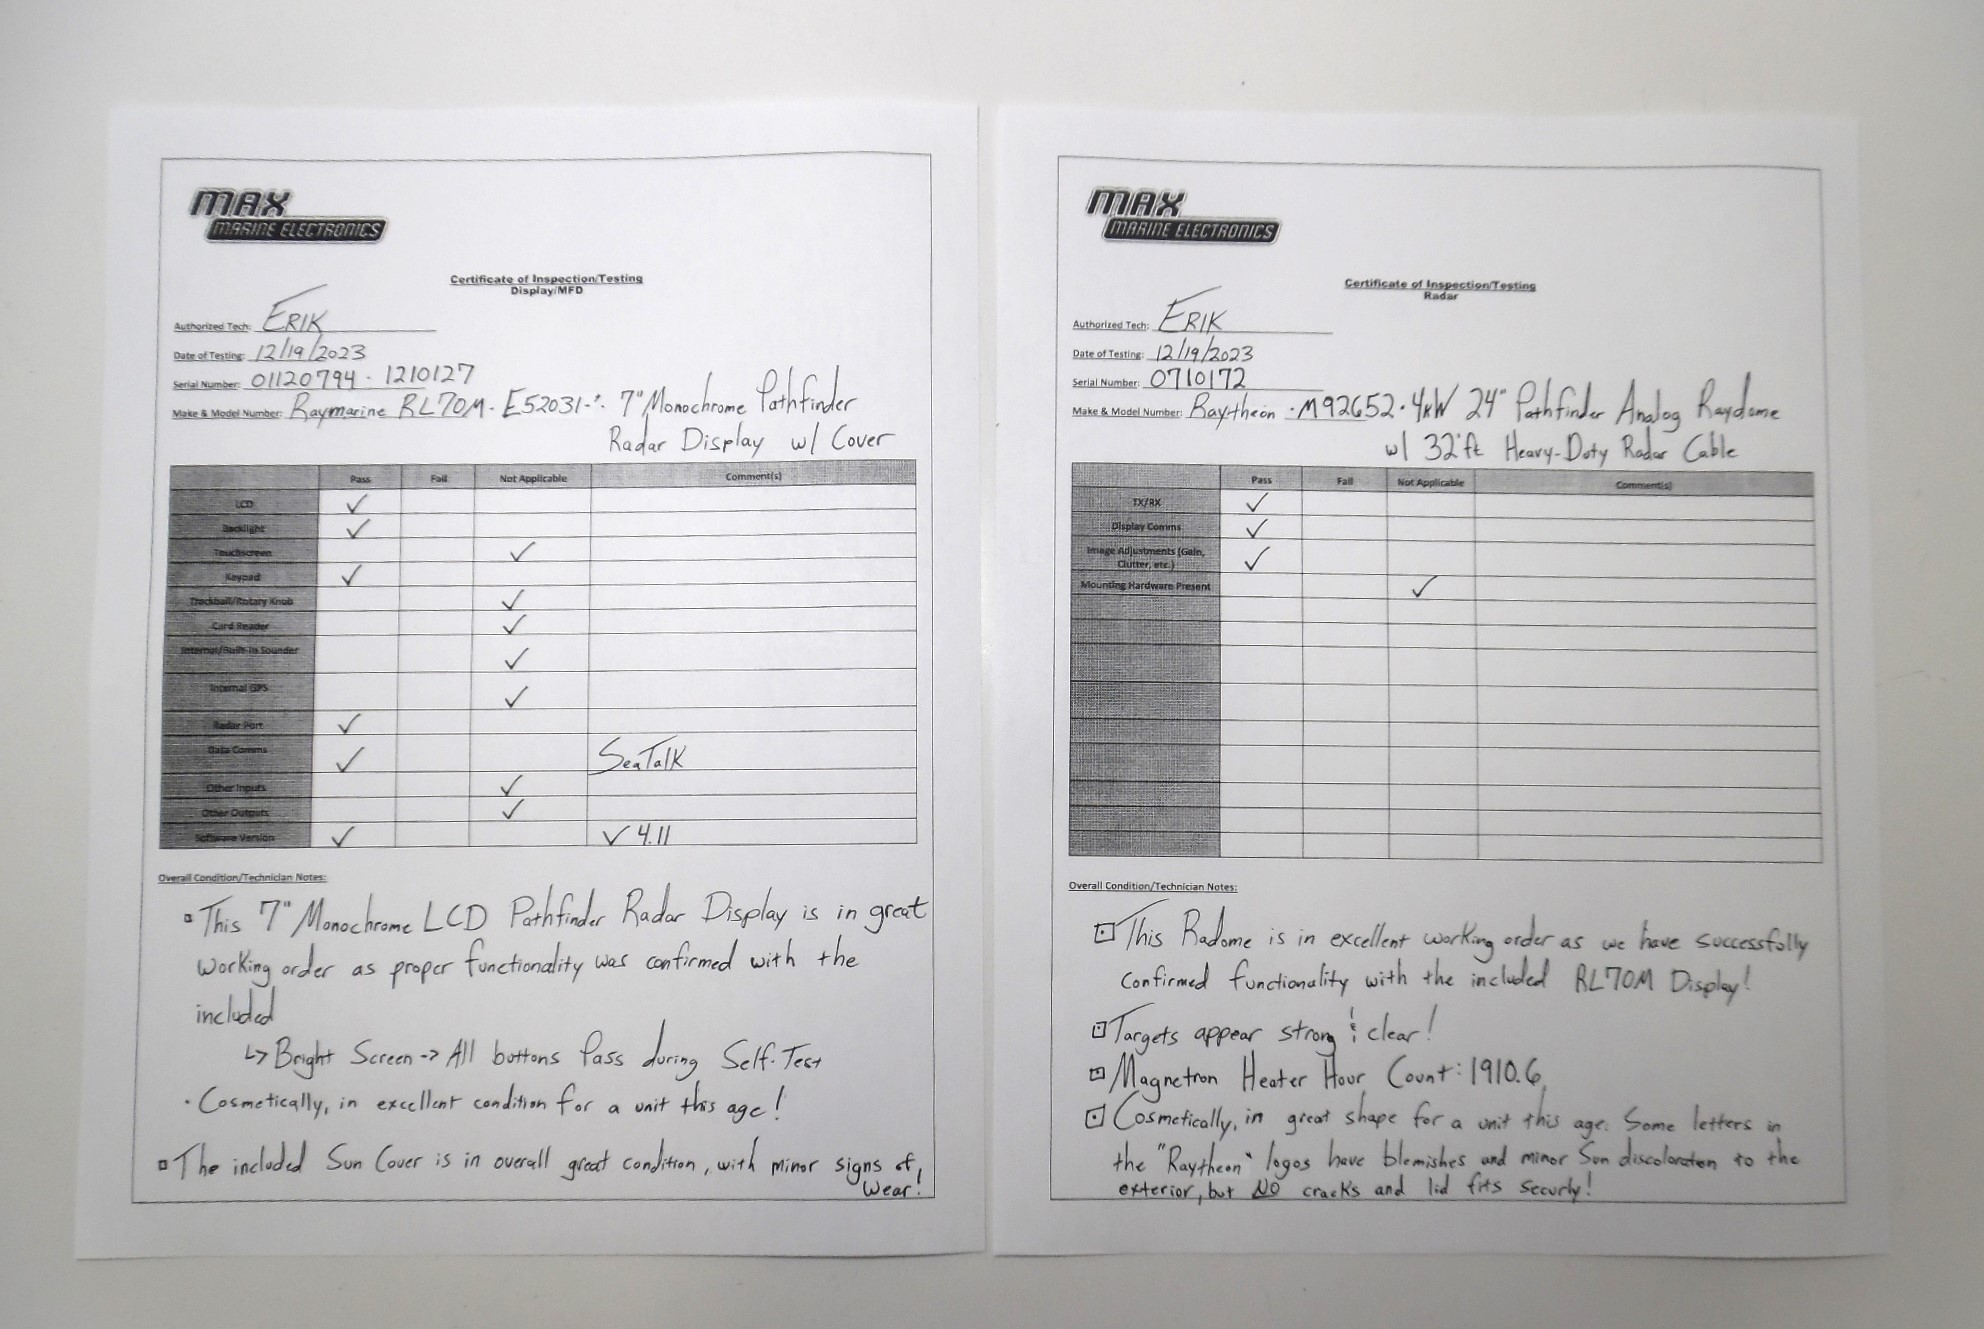 MAX
MARINE ELECTRONICS
Certificate of Inspection/Testing
Display/MFD
Authorized Tech: ERIK
Date of Testing: 12/19/2023
Serial Number: 01120794 - 1210127
Make & Model Number: Raymarine RL70M - E52031 - 7" Monochrome Pathfinder
Radar Display w/ Cover
Pass Fail Not Applicable Comment(s)
LCD ✓
Backlight ✓
Touchscreen ✓
Keypad ✓
Trackball/Rotary Knob ✓
Card Reader ✓
Internal/Built-In Sounder ✓
Internal GPS ✓
Radar Port ✓
Data Comms ✓ SeaTalk
Other Inputs ✓
Other Outputs ✓
Software Version ✓ ✓ 4.11
Overall Condition/Technician Notes:
This 7" Monochrome LCD Pathfinder Radar Display is in great
working order as proper functionality was confirmed with the
included
↳ Bright Screen -> All buttons Pass during Self-Test
· Cosmetically, in excellent condition for a unit this age!
The included Sun Cover is in overall great condition, with minor signs of
wear!
MAX
MARINE ELECTRONICS
Certificate of Inspection/Testing
Radar
Authorized Tech: ERIK
Date of Testing: 12/19/2023
Serial Number: 0710172
Make & Model Number: Raytheon · M92652 · 4kW 24" Pathfinder Analog Raydome
w/ 32'ft Heavy-Duty Radar Cable
Pass Fail Not Applicable Comment(s)
TX/RX ✓
Display Comms ✓
Image Adjustments (Gain,
Clutter, etc.) ✓
Mounting Hardware Present ✓
Overall Condition/Technician Notes:
This Radome is in excellent working order as we have successfully
confirmed functionality with the included RL70M Display!
Targets appear strong & clear!
Magnetron Heater Hour Count: 1910.6
Cosmetically, in great shape for a unit this age. Some letters in
the "Raytheon" logos have blemishes and minor Sun discoloraton to the
exterior, but NO cracks and lid fits securly!